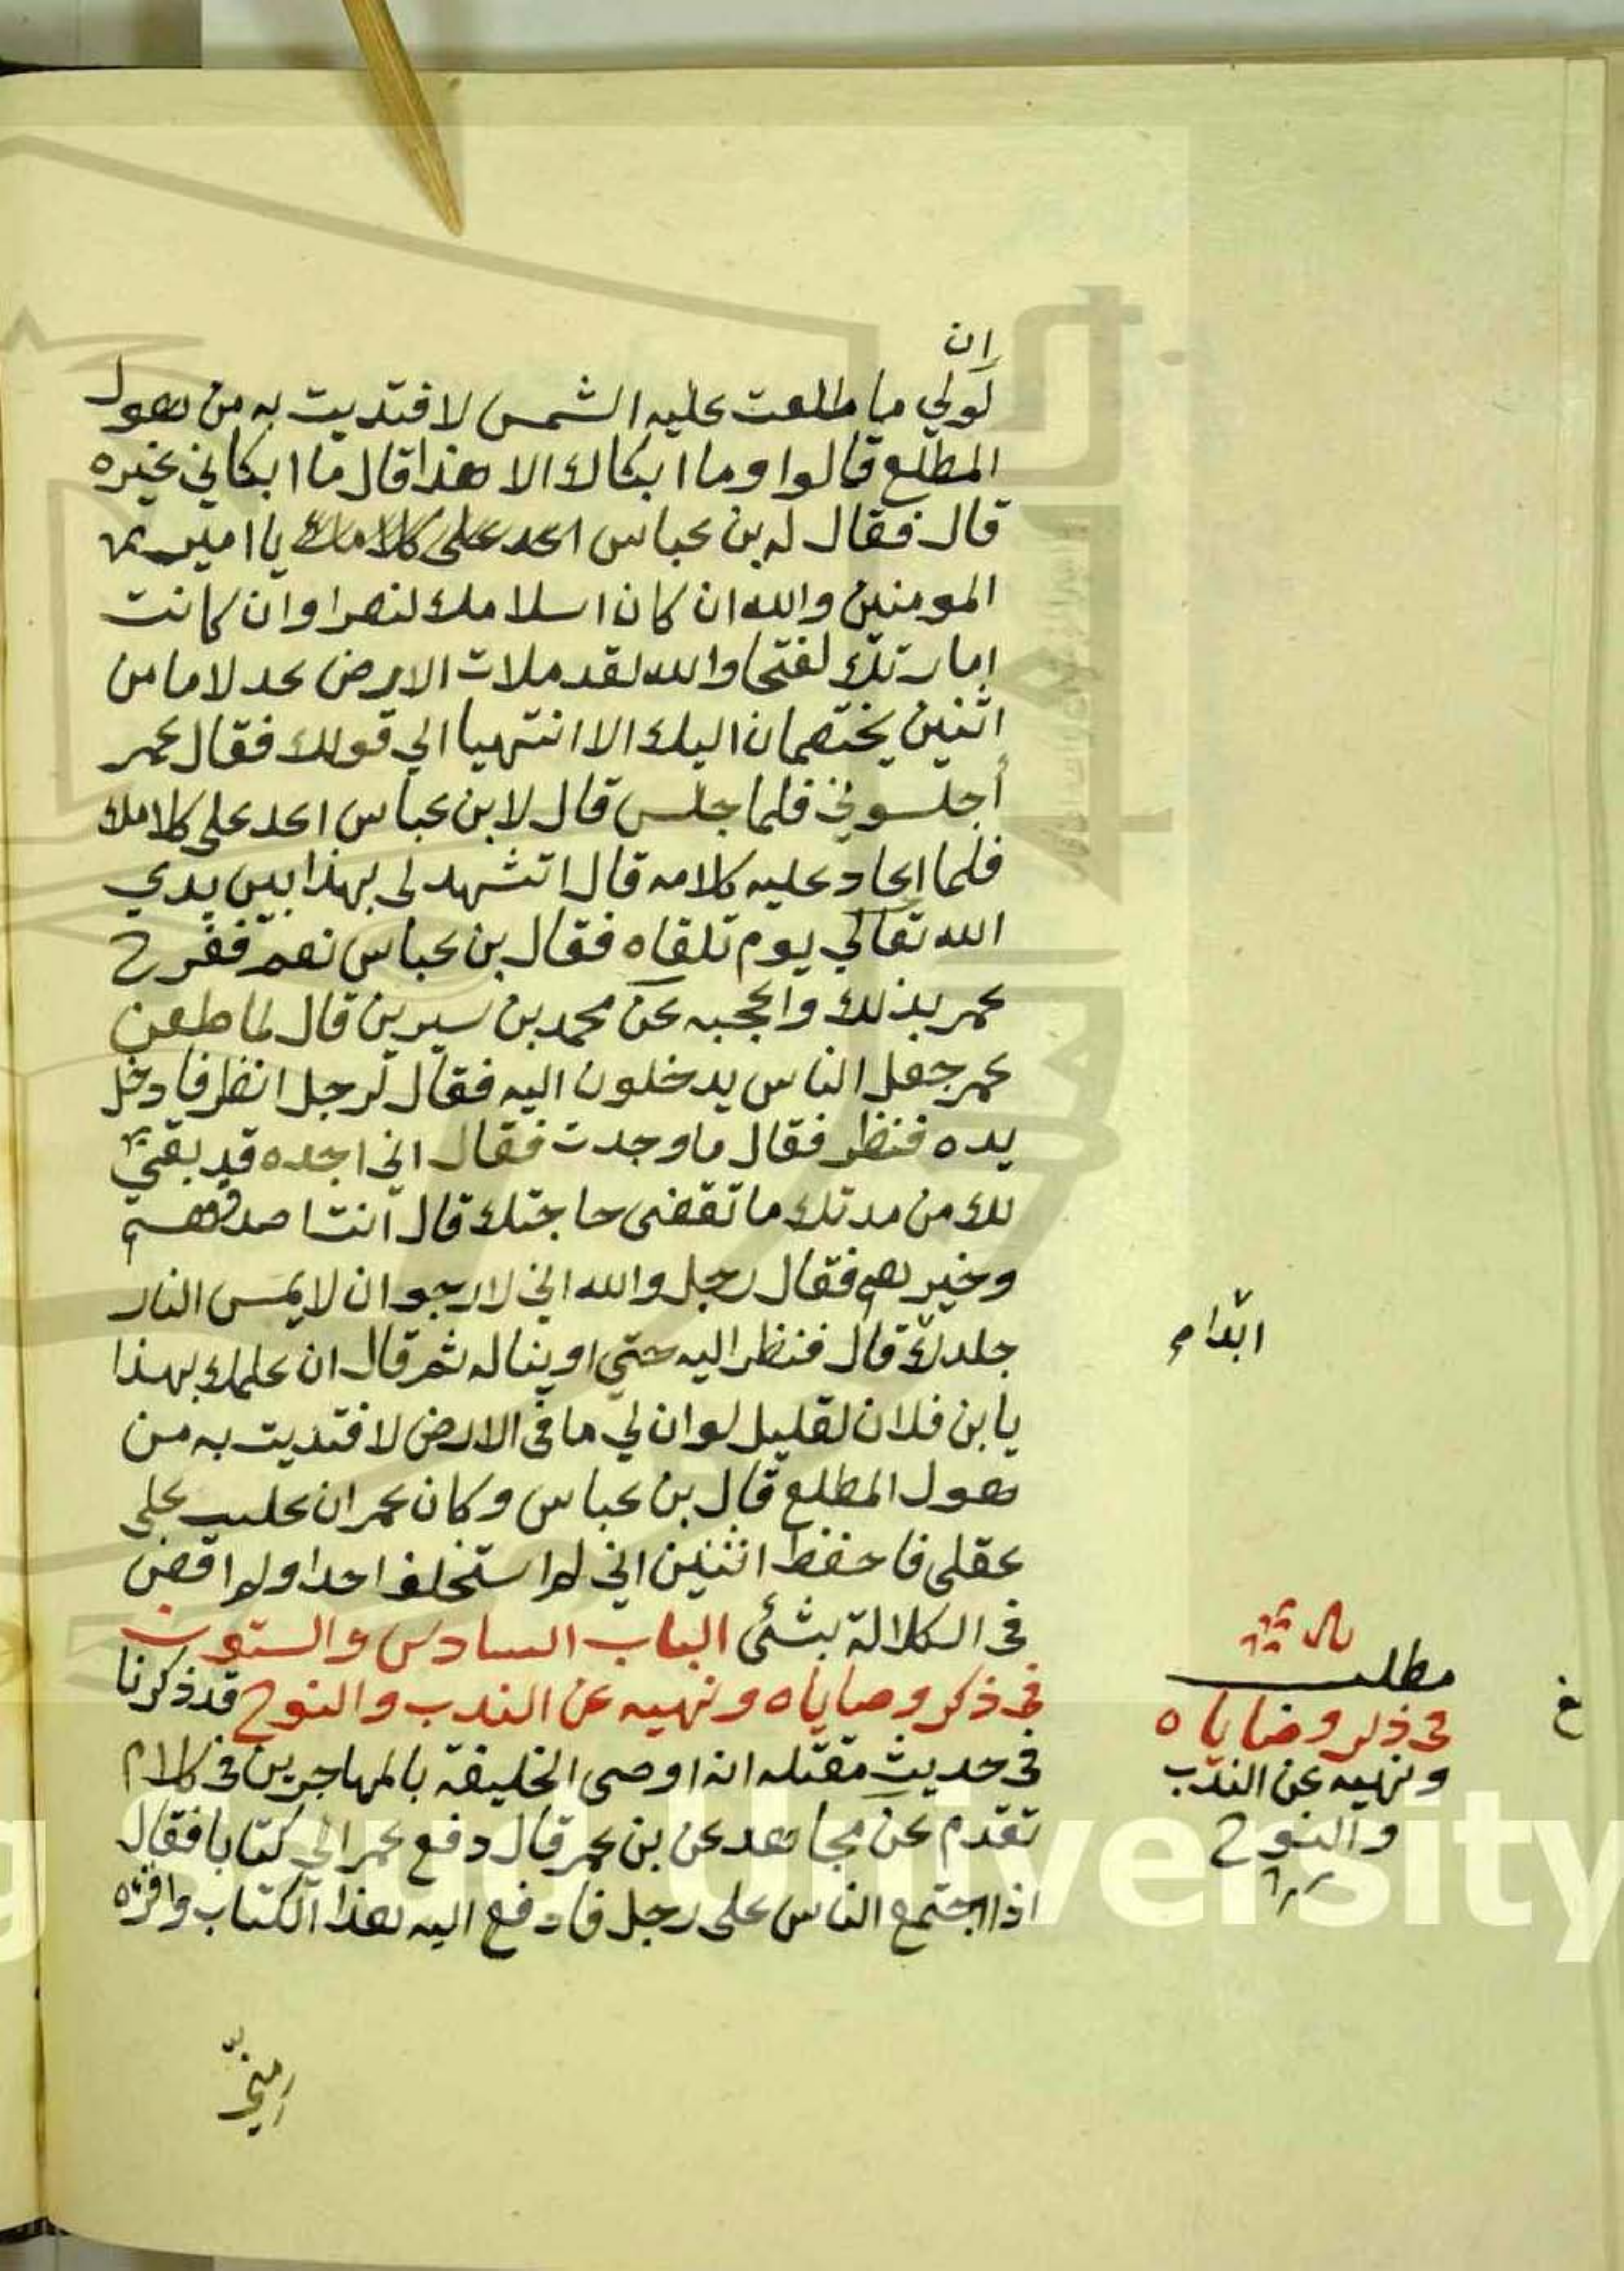 ان
لو لي ما طلعت عليه الشمس لافتديت به من هول
المطلع قالوا وما ابكاك الا هذا قال ما ابكاني غيره
قال فقال له بن عباس يا امير
المومنين والله ان كان اسلامك لنصرا وان كانت
امارتك لفتحا والله لقد ملات الارض عدلا ما من
اثنين يختصمان اليك الا انتهيا الي قولك فقال عمر
أجلسوني فلما جلس قال لابن عباس اعد على كلامك
فلما اعاد عليه كلامه قال اتشهد لى بهذا بين يدي
الله تعالي يوم تلقاه فقال بن عباس نعم ففرح
عمر بذلك واعجبه عن محمد بن سيرين قال لما طعن
عمر جعل الناس يدخلون اليه فقال لرجل انظر فادخل
يده فنظر فقال ما وجدت فقال انى اجده قد بقي
لك من مدتك ما تقضى حاجتك قال انت اصدقهم
وخيرهم فقال رجل والله اني لارجو ان لا يمس النار
جلدك قال فنظر اليه حتي اوينا له ثم قال ان علمك بهذا
يا بن فلان لقليل لو ان لي ما فى الارض لافتديت به من
هول المطلع قال بن عباس وكان عمر ان غلب على
عقلى فاحفظ اثنين اني لم استخلف احدا ولم اقض
فى الكلالة بشئ الباب السادس والستون
فى ذكر وصاياه ونهيه عن الندب والنوح قد ذكرنا
فى حديث مقتله انه اوصى الخليفة بالمهاجرين فى كلام
تقدم عن مجاهد عن بن عمر قال دفع عمر الي كتابا فقال
اذا اجتمع الناس على رجل فادفع اليه هذا الكتاب واقرئه
ابدا م
مطلب
فى ذكر وصاياه
ونهيه عن الندب
والنوح
غ
University